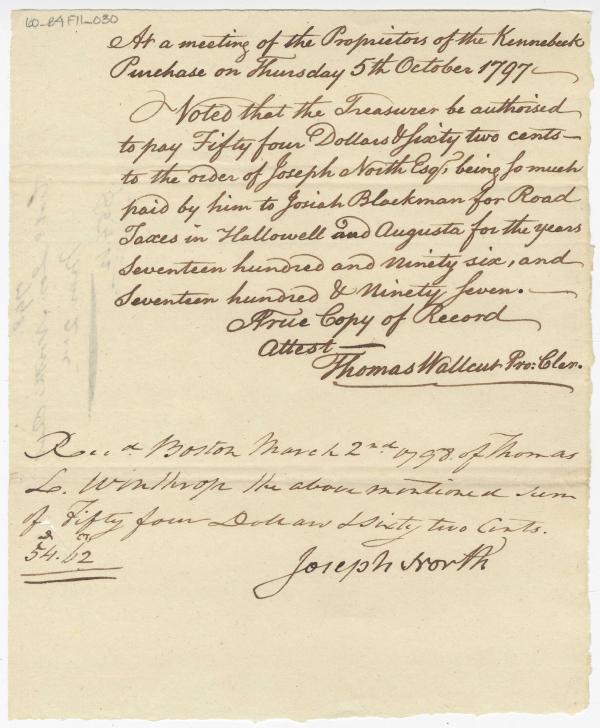 60-B4F11-030
At a meeting of the Proprietors of the Kennebeck
Purchase on Thursday 5th October 1797
Voted that the Treasurer be authorised
to pay Fifty four Dollars & Sixty two cents
to the order of Joseph North Esqr, being so much
paid by him to Josiah Blackman for Road
Taxes in Hallowell and Augusta for the years
Seventeen hundred and ninety six, and
Seventeen hundred & Ninety Seven.
A true Copy of Record
Attest
Thomas Wallcut Pro: Cler.
Rec.d Boston March 2nd 1798. of Thomas
L. Winthrop the above mentioned sum
of Fifty four Dollars & Sixty two Cents.
54.62
Joseph North